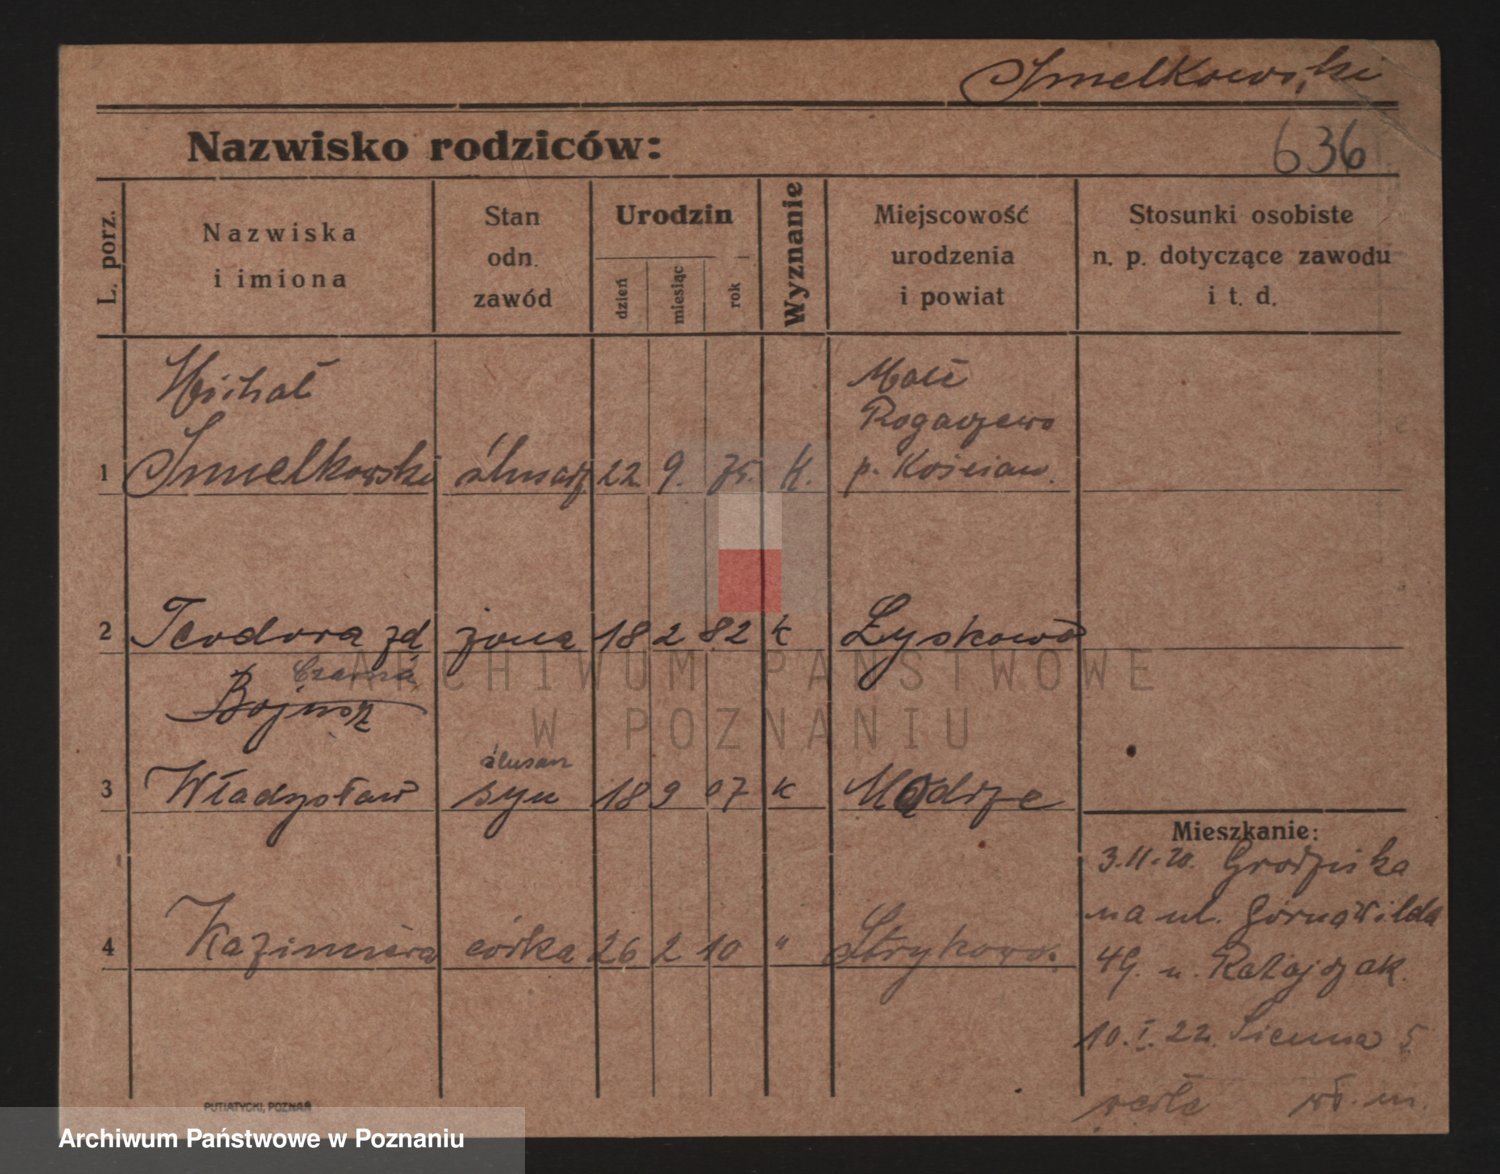 Smelkowski
Nazwisko rodziców:
636
L. porz.
Nazwiska
i imiona
Stan
odn.
zawód
Urodzin
dzień
miesiąc
rok
Wyznanie
Miejscowość
urodzenia
i powiat
Stosunki osobiste
n. p. dotyczące zawodu
i t. d.
Michał
Małe
Rogaczewo
1 Smelkowski ślusarz 22 9. 75. K. p. Kościan.
2 Teodora zd żona 18 2 82 k Łyskowo
Czarna
Bojusz
ślusarz
3 Władysław syn 18 9 07 k Modrze
Mieszkanie:
3.11.20. Grodziska
na ul. Górna Wilda
4 Kazimiera córka 26 2 10 " Strykowo.
49. u. Ratajczak.
10.I.22. Sienna 5
wł. m.
PUTIATYCKI, POZNAŃ
ARCHIWUM PAŃSTWOWE
W POZNANIU
Archiwum Państwowe w Poznaniu